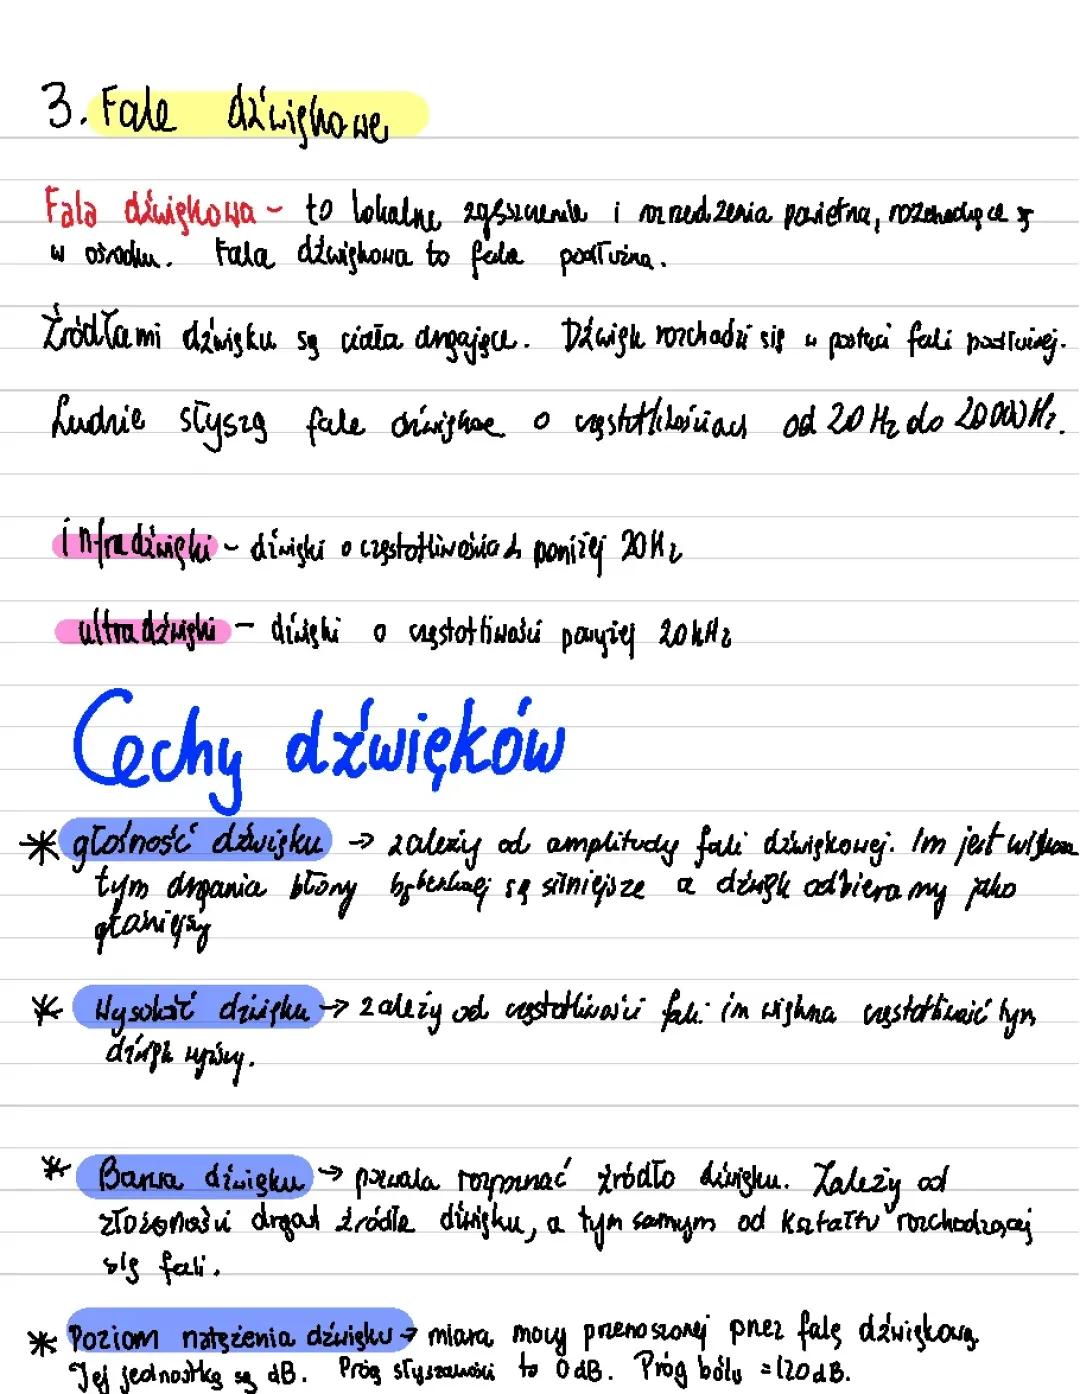 3. Fale dźwiękowe
Fala dźwiękowa - to lokalne zgęszczenie i rozrzedzenia powietrza, rozchodzące się
w ośrodku. Fala dźwiękowa to fala podłużna.
Źródłami dźwięku są ciała drgające. Dźwięk rozchodzi się w postaci fali podłużnej.
Ludzie słyszą fale dźwiękowe o częstotliwościach od 20 Hz do 20000 Hz.
infradźwięki - dźwięki o częstotliwościach poniżej 20Hz
ultradźwięki - dźwięki o częstotliwości powyżej 20kHz
Cechy dźwięków
* głośność dźwięku → zależy od amplitudy fali dźwiękowej. Im jest większa
tym drgania błony bębenkowej są silniejsze a dźwięk odbieramy jako
głośniejszy
* Wysokość dźwięku → zależy od częstotliwości fali. im większa częstotliwość tym
dźwięk wyższy.
* Barwa dźwięku → pozwala rozpoznać źródło dźwięku. Zależy od
złożoności drgań źródła dźwięku, a tym samym od kształtu rozchodzącej
się fali.
* Poziom natężenia dźwięku → miara mocy przenoszonej przez falę dźwiękową.
Jej jednostką są dB. Próg słyszalności to 0 dB. Próg bólu = 120 dB.